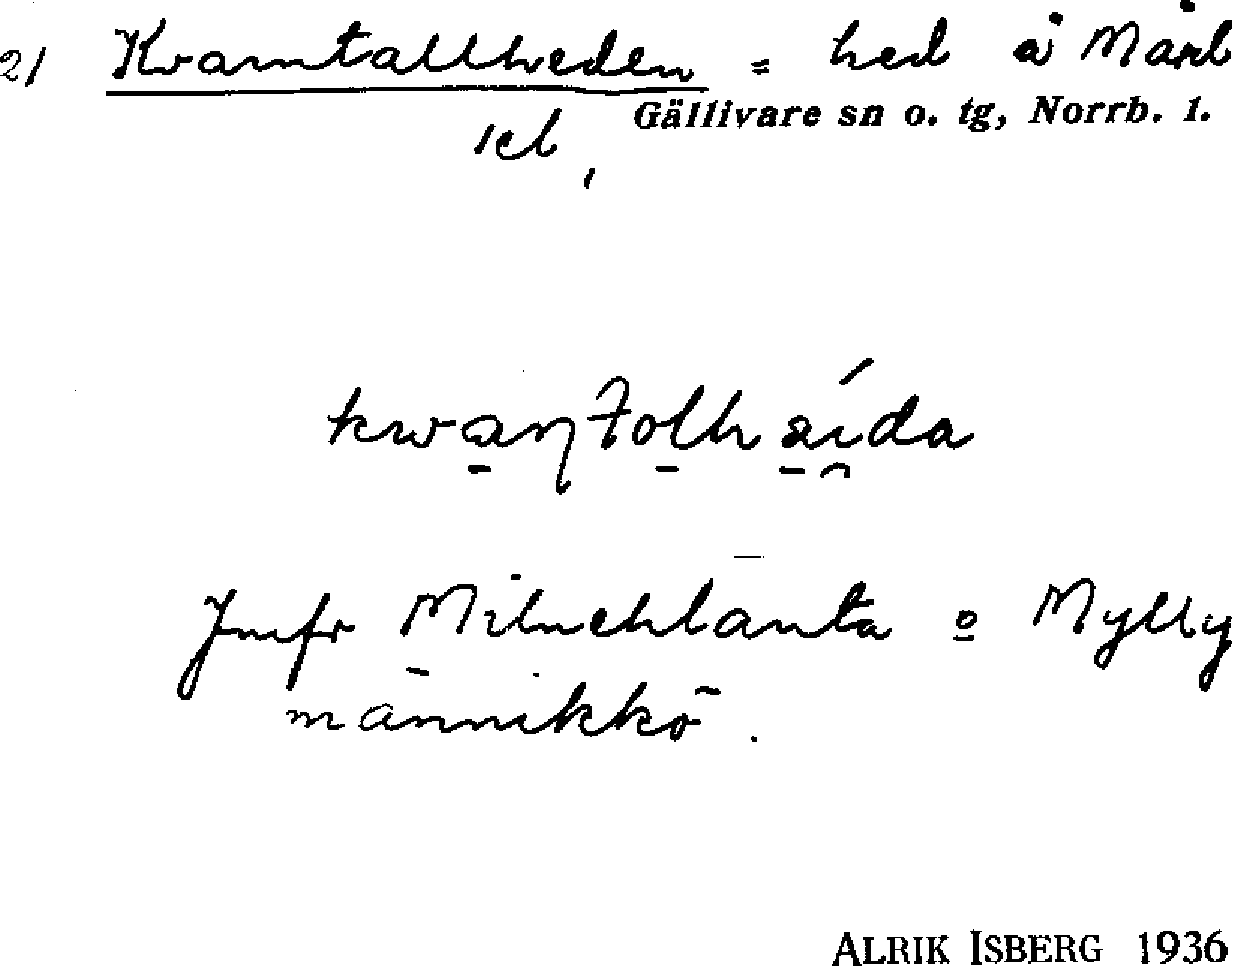 21 Kvarntallheden = hed å Mård
Gällivare sn o. tg, Norrb. l.
sel,
Jmfr o Mylly
männikkö.
ALRIK ISBERG 1936